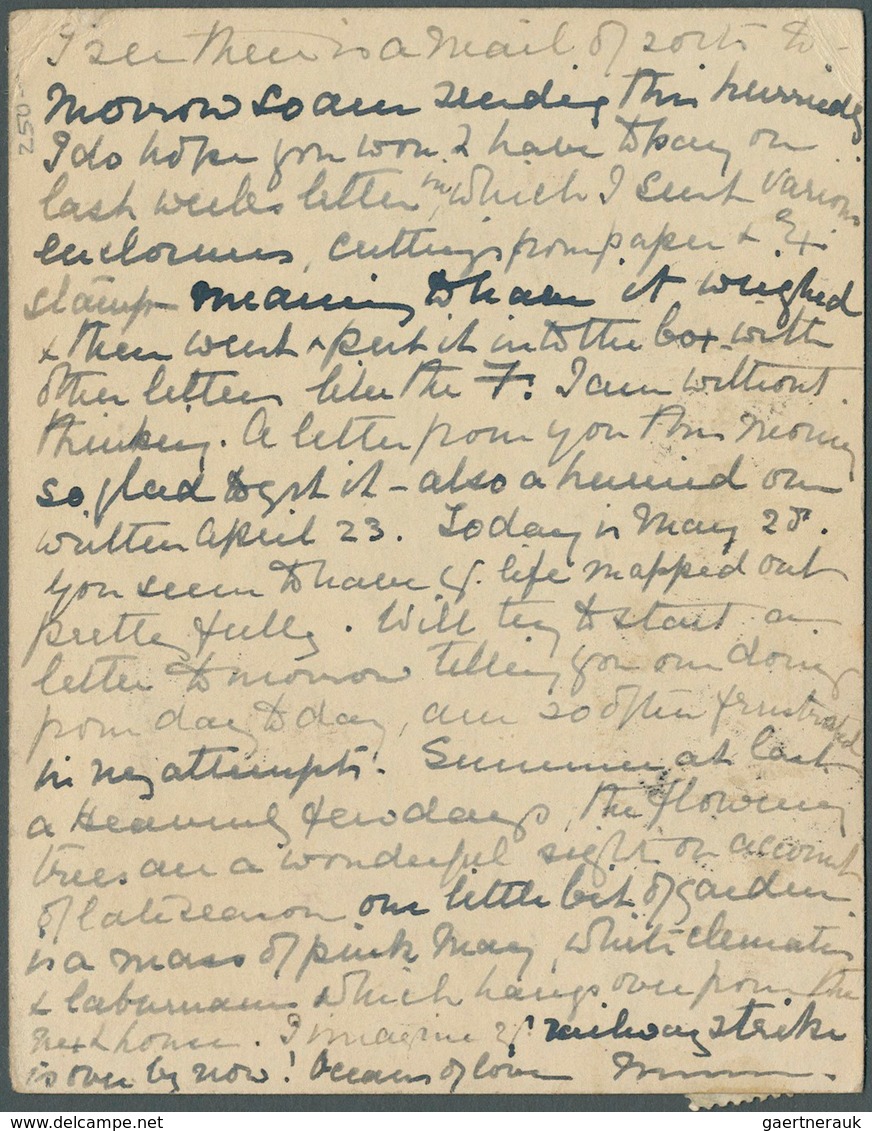 I see there is a mail of sorts to-
morrow so am sending this hurriedly
I do hope you won't have to pay on
last weeks letter in which I sent various
enclosures, cuttings from paper &
stamps meaning to have it weighed
& then went & put it into the box with
other letters like the F. I am without
thinking. A letter from you this morning
so glad to get it - also a hurried one
written April 23. Today is May 28.
You seem to have yr. life mapped out
pretty fully. Will try to start a
letter tomorrow telling you our doings
from day to day, am so often frustrated
in my attempts. Summer at last
a Heavenly few days, the flowering
trees are a wonderful sight on account
of late season our little bit of garden
is a mass of pink May, white clematis
& laburnum which hangs over from the
next house. I imagine yr railway strike
is over by now! Oceans of love
250-
gaertnerauk
www.delcampe.net